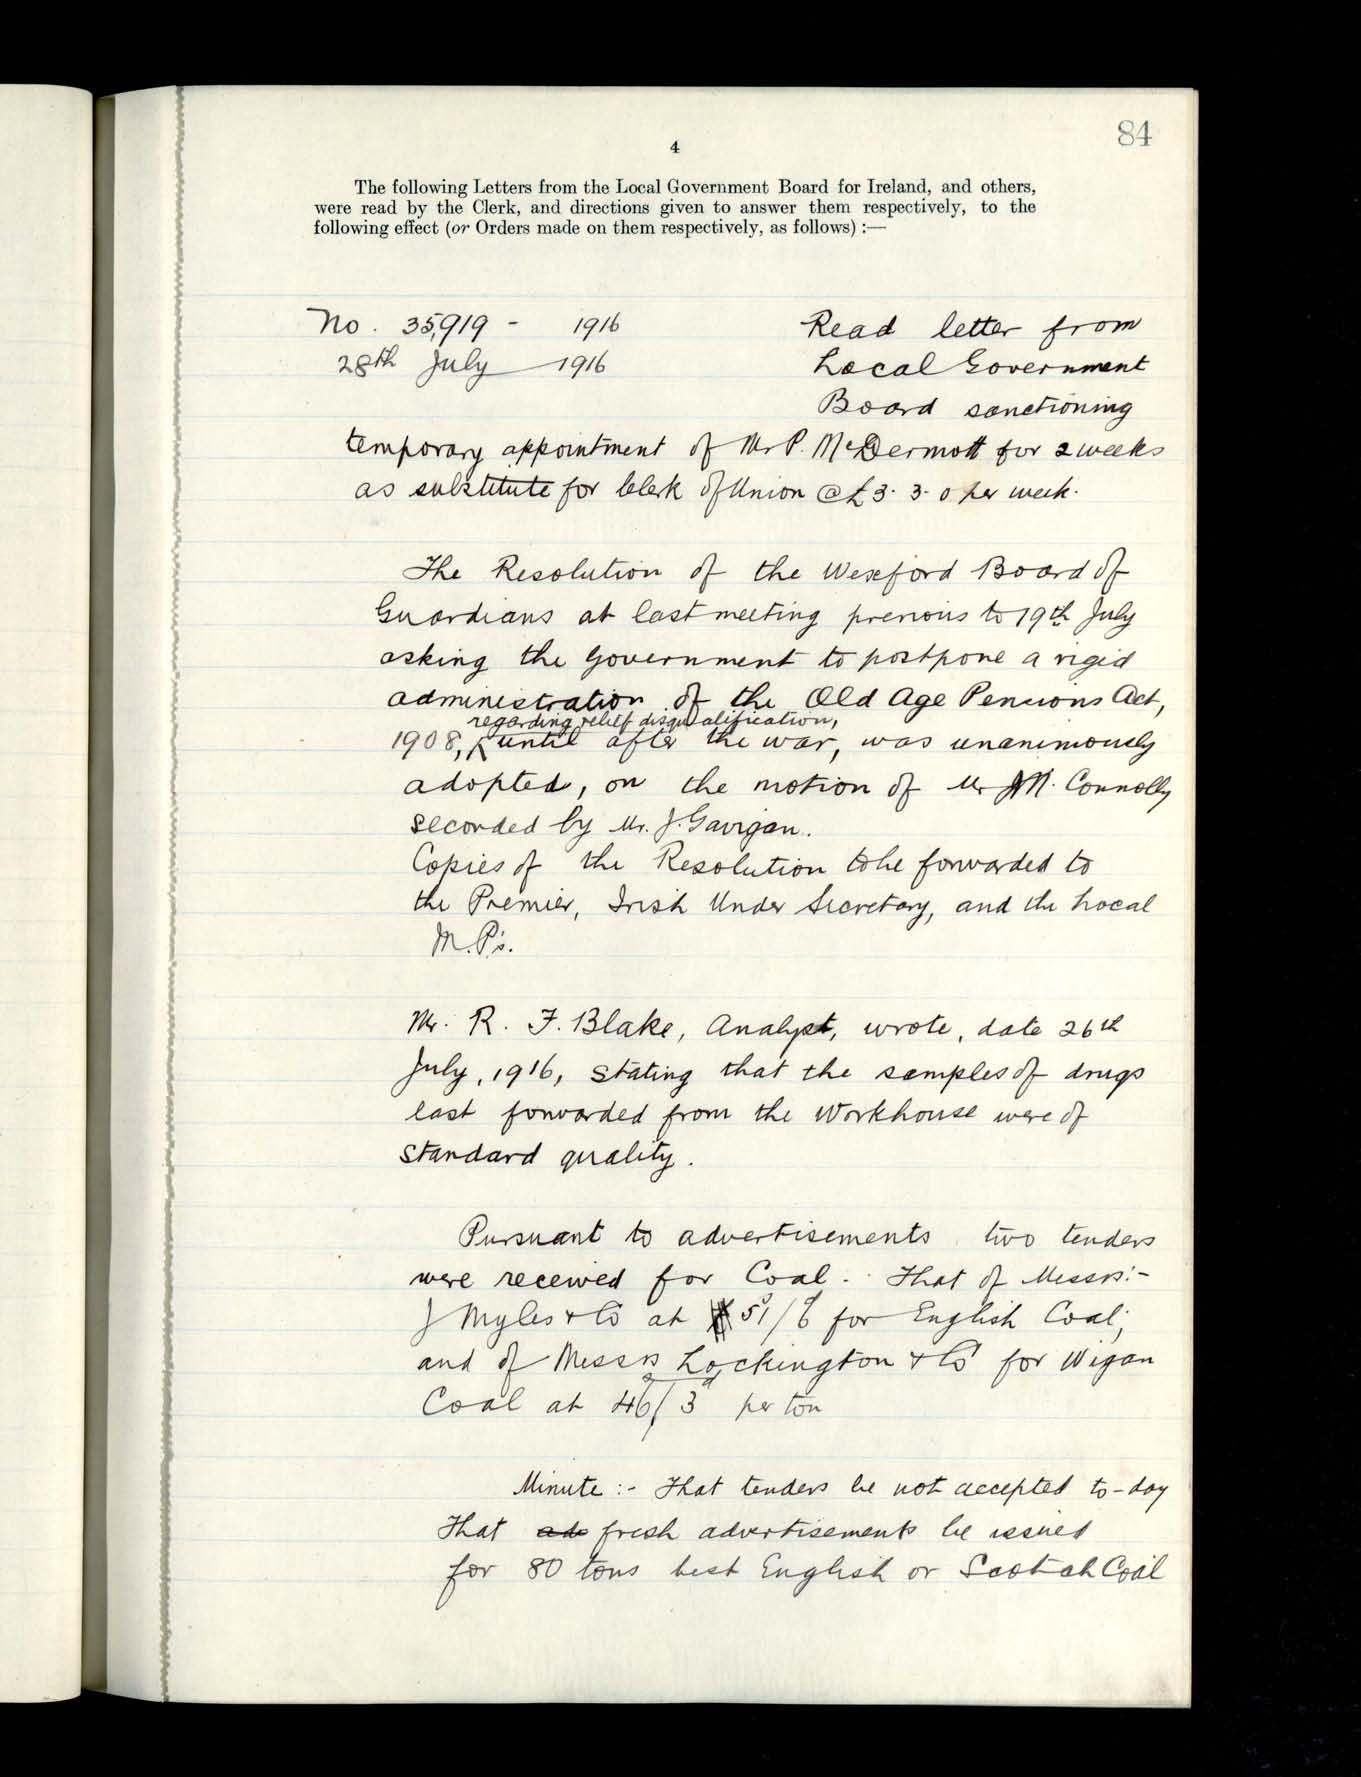 84
4
The following Letters from the Local Government Board for Ireland, and others,
were read by the Clerk, and directions given to answer them respectively, to the
following effect (or Orders made on them respectively, as follows) :—
No. 35,919 - 1916 Read letter from
28th July 1916 Local Government
Board sanctioning
temporary appointment of Mr P. McDermott for 2 weeks
as substitute for Clerk of Union @ £3. 3. 0 per week.
The Resolution of the Wexford Board of
Guardians at last meeting previous to 19th July
asking the Government to postpone a rigid
administration of the Old Age Pensions Act,
regarding relief disqualification,
1908, ^ until after the war, was unanimously
adopted, on the motion of Mr M. Connolly
seconded by Mr. J. Gavigan.
Copies of the Resolution to be forwarded to
the Premier, Irish Under Secretary, and the Local
M.P's.
Mr. R. F. Blake, Analyst, wrote, date 26th
July, 1916, stating that the samples of drugs
last forwarded from the Workhouse were of
standard quality.
Pursuant to advertisements two tenders
were received for Coal. That of Messrs:-
J Myles & Co at 51s/6d for English Coal;
and of Messrs Lockington & Co for Wigan
Coal at 46s/3d per ton
Minute :- That tenders be not accepted to-day
That ad fresh advertisements be issued
for 80 tons best English or Scotch Coal